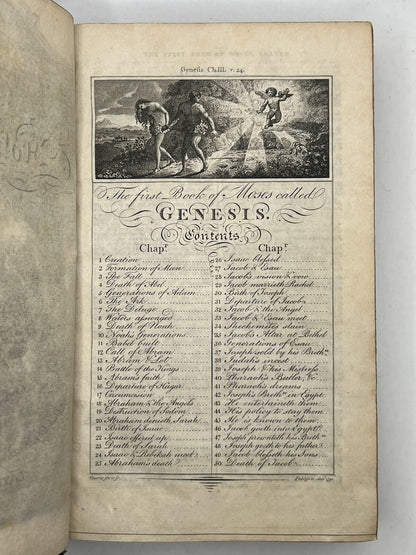 Genesis Ch.III. v. 24.
The first Book of Moses called
GENESIS.
Contents
Chapr.
1 Creation
2 Formation of Man
3 The Fall
4 Death of Abel
5 Generations of Adam
6 The Ark
7 The Deluge
8 Waters asswaged
9 Death of Noah
10 Noah's Generations
11 Babel built
12 Call of Abram
13 Abram & Lot
14 Battle of the Kings
15 Abram's faith
16 Departure of Hagar
17 Circumcision
18 Abraham & the Angels
19 Destruction of Sodom
20 Abraham denieth Sarah
21 Birth of Isaac
22 Isaac offered up
23 Death of Sarah
24 Isaac & Rebekah meet
25 Abraham's death
Chapr.
26 Isaac blessed
27 Jacob & Esau
28 Jacob's vision & vow
29 Jacob marrieth Rachel
30 Birth of Joseph
31 Departure of Jacob
32 Jacob & the Angel
33 Jacob & Esau meet
34 Shechemites slain
35 Jacob's Altar at Bethel
36 Generations of Esau
37 Joseph sold by his Brethn.
38 Judah's incest
39 Joseph & his Mistress
40 Pharaoh's Butler, &c.
41 Pharaoh's dreams
42 Joseph's Brethn. in Egypt
43 He entertaineth them
44 His policy to stay them
45 He is known to them
46 Jacob goeth into Egypt
47 Joseph presenteth his Brethn.
48 Joseph goeth to his father
49 Jacob blesseth his Sons
50 Death of Jacob